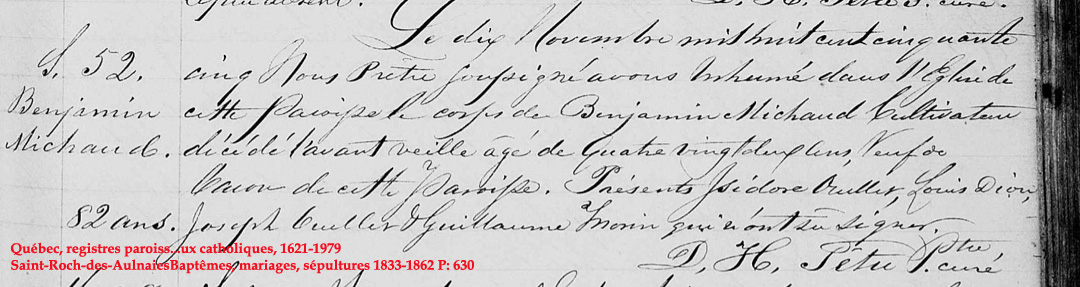 D. H. Têtu P. curé.
Le dix Novembre mil huit cent cinquante
S. 52. cinq Nous Prêtre soussigné avons inhumé dans l'Eglise de
Benjamin cette Paroisse le corps de Benjamin Michaud Cultivateur
Michaud. décédé l'avant veille âgé de quatre vingt deux ans, Veuf de
de cette Paroisse. Présents Isidore Ouellet, Louis Dion,
82 ans. Joseph Ouellet & Guillaume Morin qui n'ont su signer.
D. H. Têtu Ptre curé
Québec, registres paroiss. ux catholiques, 1621-1979
Saint-Roch-des-AulnaiesBaptêmes, mariages, sépultures 1833-1862 P: 630